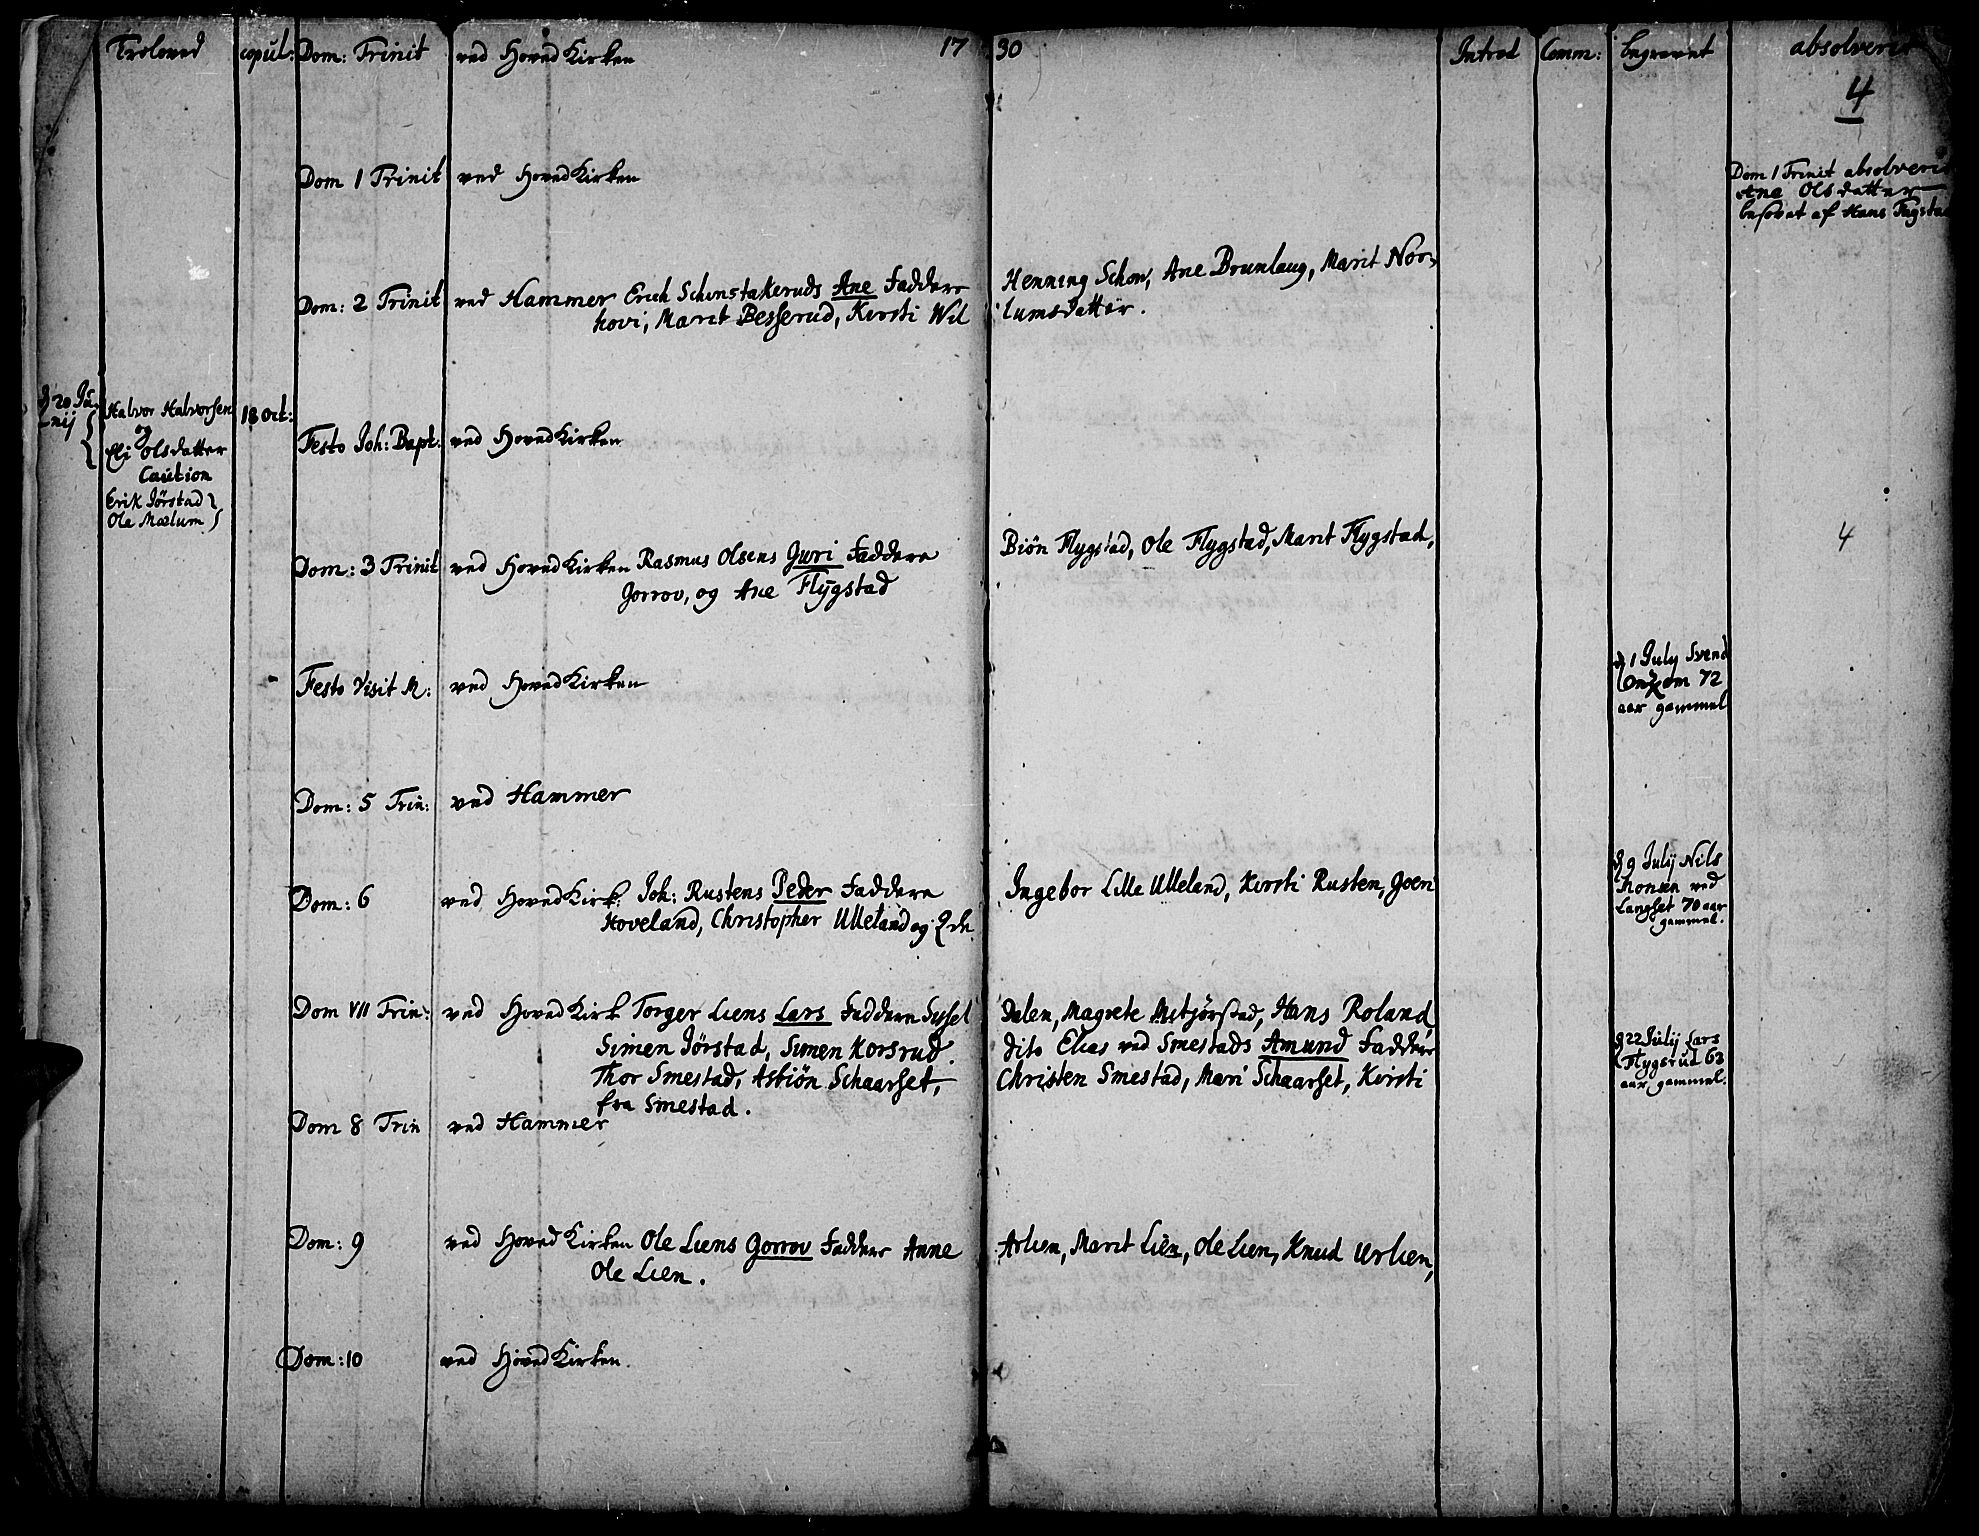 Troloved copul: Dom: Trinit ved Hoved Kirken 17 30 Introd Comm: begravet absolveret
4
Dom 1 Trinit ved Hoved Kirken
Dom 1 Trinit absolveret
Ane Olsdatter
besovet af Hans Flygstad
Dom: 2 Trinit ved Hammer Erich Schonstakeruds Ane Faddere Henning Schow, Ane Brunlaug, Marit Nor-
hovi, Marit Besserud, Kirsti Wil lumsdatter.
d 20 Ju
nij
Halvor Halvorsen 18 Oct:
og
Eli Olsdatter
Caution
Erik Jörstad
Ole Mælum
Festo Joh: Bapt: ved Hoved Kirken
Dom: 3 Trinit ved Hoved Kirken Rasmus Olsens Guri Faddere Biön Flygstad, Ole Flygstad, Marit Flygstad,
Gorrov, og Ane Flygstad
4
Festo Visit M: ved Hoved Kirken
d 1 July Svend
om 72
aar gammel
Dom: 5 Trin: ved Hammer
Dom: 6 ved Hoved Kirk: Joh: Rustens Peder Faddere Ingebor Lille Ulleland, Kirsti Rusten, Goeri
Hoveland, Christopher Ulleland og
d 9 Julij Nils
Thonsen ved
Langset 70 aar
gammel.
Dom VII Trin: ved Hoved Kirk Torger Liens Lars Faddere Syssel Dalen, Magrete Mitjörstad, Hans Roland
Simen Jörstad, Simen Korsrud. Dito Elias ved Smestads Amund Faddere
Thor Smestad, Asbiön Schaarset, Christen Smestad, Mari Schaarset, Kirsti
fra Smestad.
d 22 Julij Lars
Flygsrud 63
aar gammel.
Dom 8 Trin ved Hammer
Dom: 9 ved Hoved Kirken Ole Liens Gorrov Faddere Anne Arlien, Marit Lien, Ole Lien, Knud Urlien,
Ole Lien.
Dom: 10 ved Hoved Kirken.